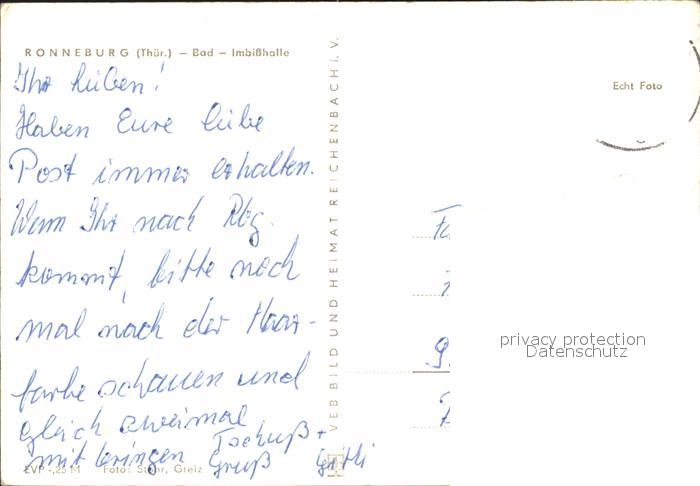 RONNEBURG (Thür.) – Bad – Imbißhalle
Ihr Lieben!
Haben Eure liebe
Post immer erhalten.
Wenn Ihr nach Rbg.
kommt, bitte noch
mal nach der Haar-
farbe schauen und
gleich zweimal
mitbringen Tschuß +
Gruß Gitti
EVP -,25 M Foto: Stöhr, Greiz
VEB BILD UND HEIMAT REICHENBACH i. V.
Echt Foto
Fa
privacy protection
Datenschutz